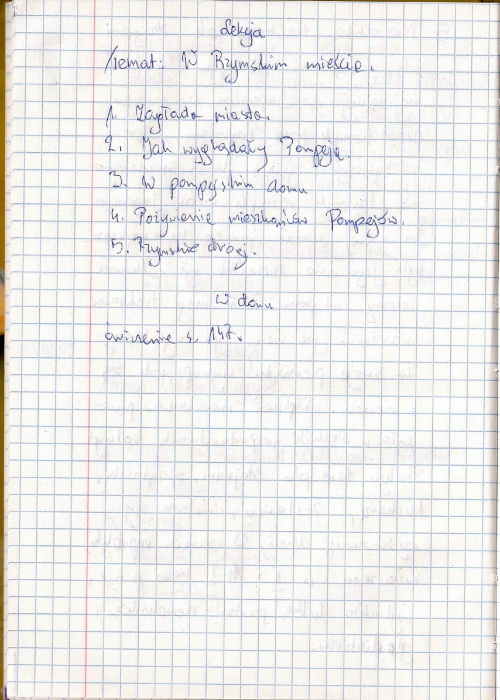 Lekcja
Temat: W Rzymskim mieście.
1. Zagłada miasta.
2. Jak wyglądały Pompeje.
3. W pompejskim domu
4. Pożywienie mieszkańców Pompejów.
5. Rzymskie drogi.
W domu
ćwiczenie s. 147.